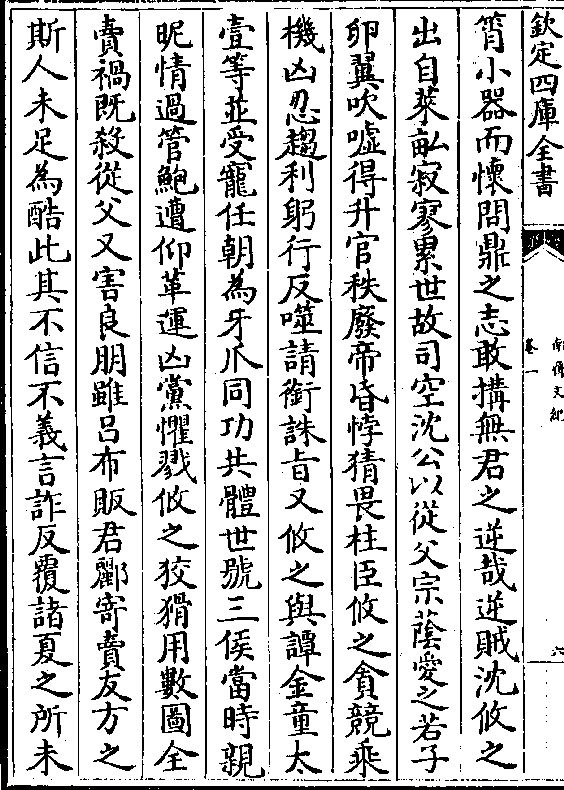 欽定四庫全書
南齊文紀
卷一
六
筲小器而懷問鼎之志敢搆無君之逆哉逆賊沈攸之
出自萊畝寂寥累世故司空沈公以從父宗蔭愛之若子
卵翼吹噓得升官秩廢帝昏悖猜畏柱臣攸之貪競乘
機凶忍趨利躬行反噬請銜誅旨又攸之與譚金童太
壹等並受寵任朝為牙爪同功共體世號三侯當時親
昵情過管鮑遭仰革運凶黨懼戮攸之狡猾用數圖全
賣禍既殺從父又害良朋雖呂布販君酈寄賣友方之
斯人未足為酷此其不信不義言詐反覆諸夏之所未